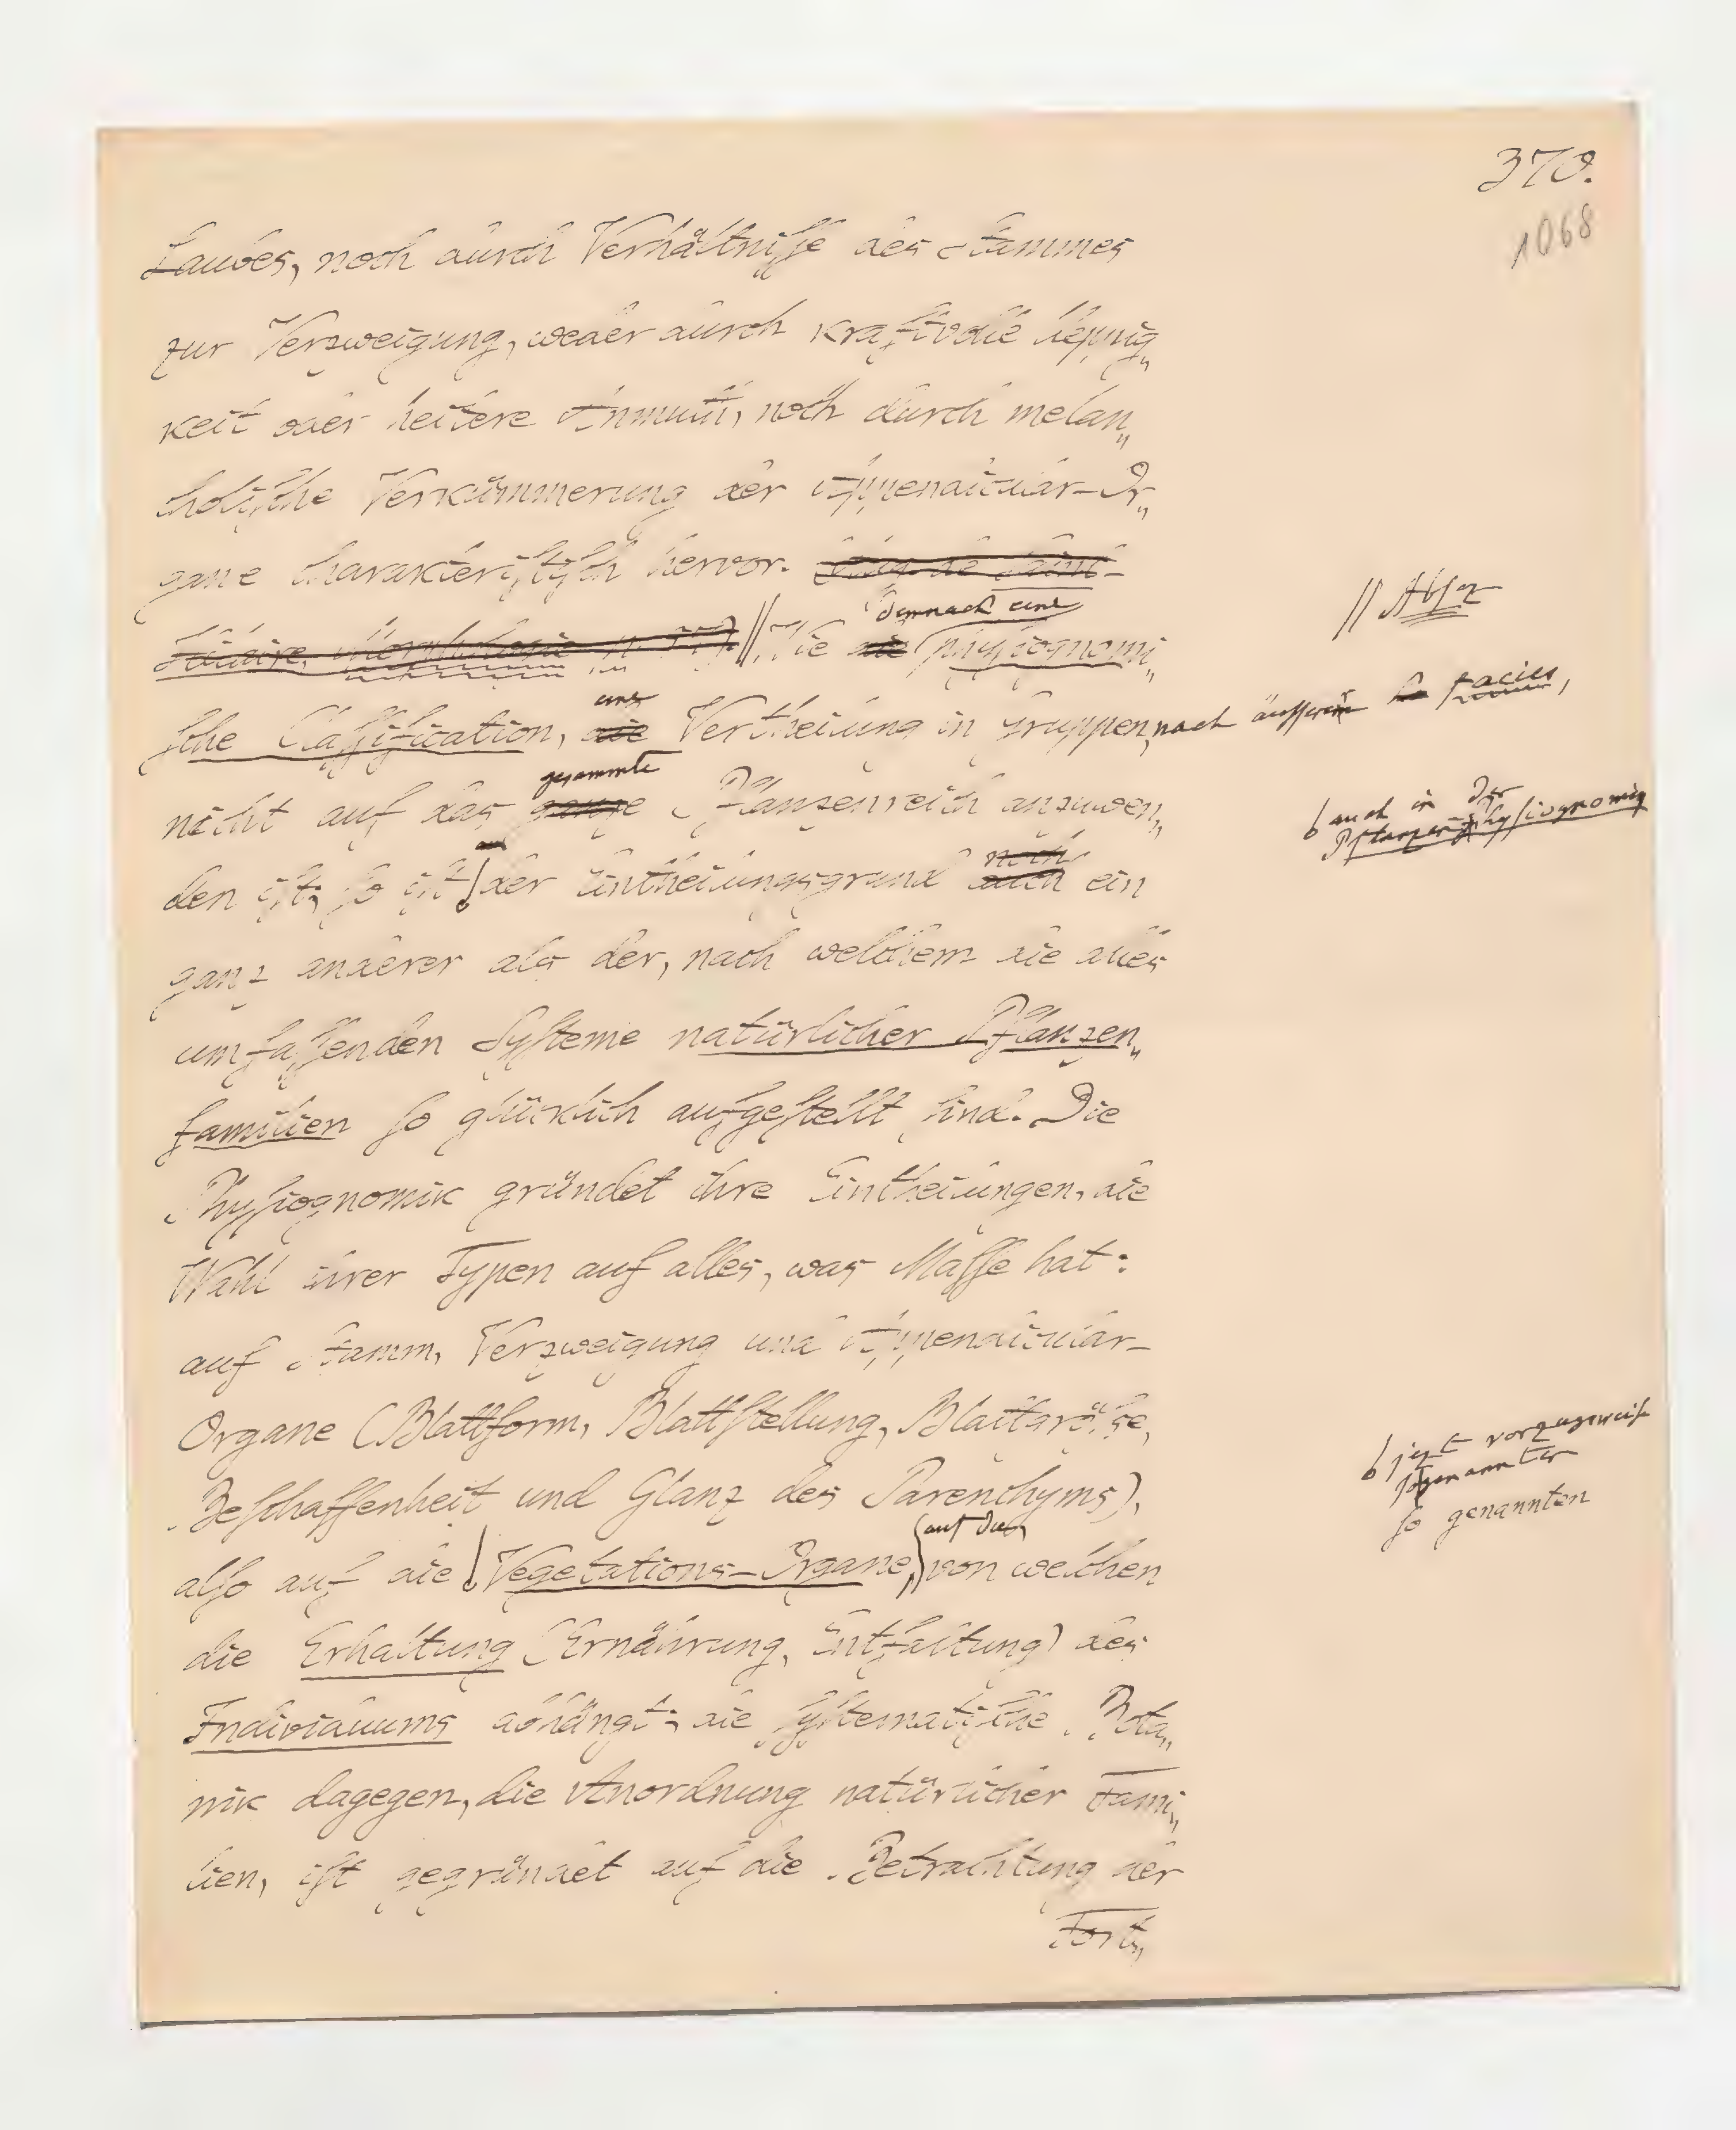 370.
1068
Laubes, noch durch Verhältnisse des Stammes
zur Verzweigung, weder durch kraftvolle Ueppig„
keit oder heitere Anmuth, noch durch melan„
cholische Verkümmerung der Appendicular-Or„
gane charakteristisch hervor.
Morphologie
// Absaz
// Wie die demnach eine physiognomi„
sche Classification, die eine Vertheilung in Gruppen, nach äusserer facies,
nicht auf das ganze gesammte Pflanzenreich anzuwen„
auch in der
Pflanzen-Physiognomik
den ist; so ist der Eintheilungsgrund auch noch ein
ganz anderer als der, nach welchem die alles
umfassenden Systeme natürlicher Pflanzen„
familien so glücklich aufgestellt sind. Die
Physiognomik gründet ihre Eintheilungen, die
Wahl ihrer Typen auf alles, was Masse hat:
auf Stamm, Verzweigung und Appendicular-
Organe (Blattform, Blattstellung, Blattgröße,
Beschaffenheit und Glanz des Parenchyms),
jezt vorzugsweise
sogenannter
so genannten
also auf die Vegetations-Organe, auf die, von welchen
die Erhaltung (Ernährung, Entfaltung) des
Individuums abhängt; die systematische Bota„
nik dagegen, die Anordnung natürlicher Fami„
lien, ist gegründet auf die Betrachtung der
Fort„